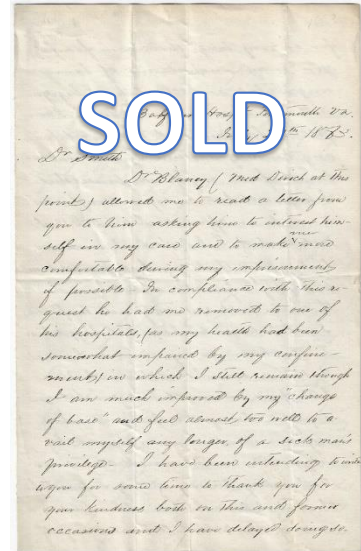 SOLD
Balfour Hosp. Portsmouth Va.
July th 186
Dr Smith
Dr Blaney (Med Direct at this
point) allowed me to read a letter from
you to him asking him to interest him-
self in my case and to make me more
comfortable during my imprisonment
if possible. In compliance with this re-
quest he had me removed to one of
his hospitals, (as my health had been
somewhat impaired by my confine-
ment) in which I still remain though
I am much improved by my "change
of base" and feel almost too well to a-
vail myself any longer of a sick man's
privilege. I have been intending to write
to you for some time to thank you for
your kindness both on this and former
occasions but I have delayed doing so